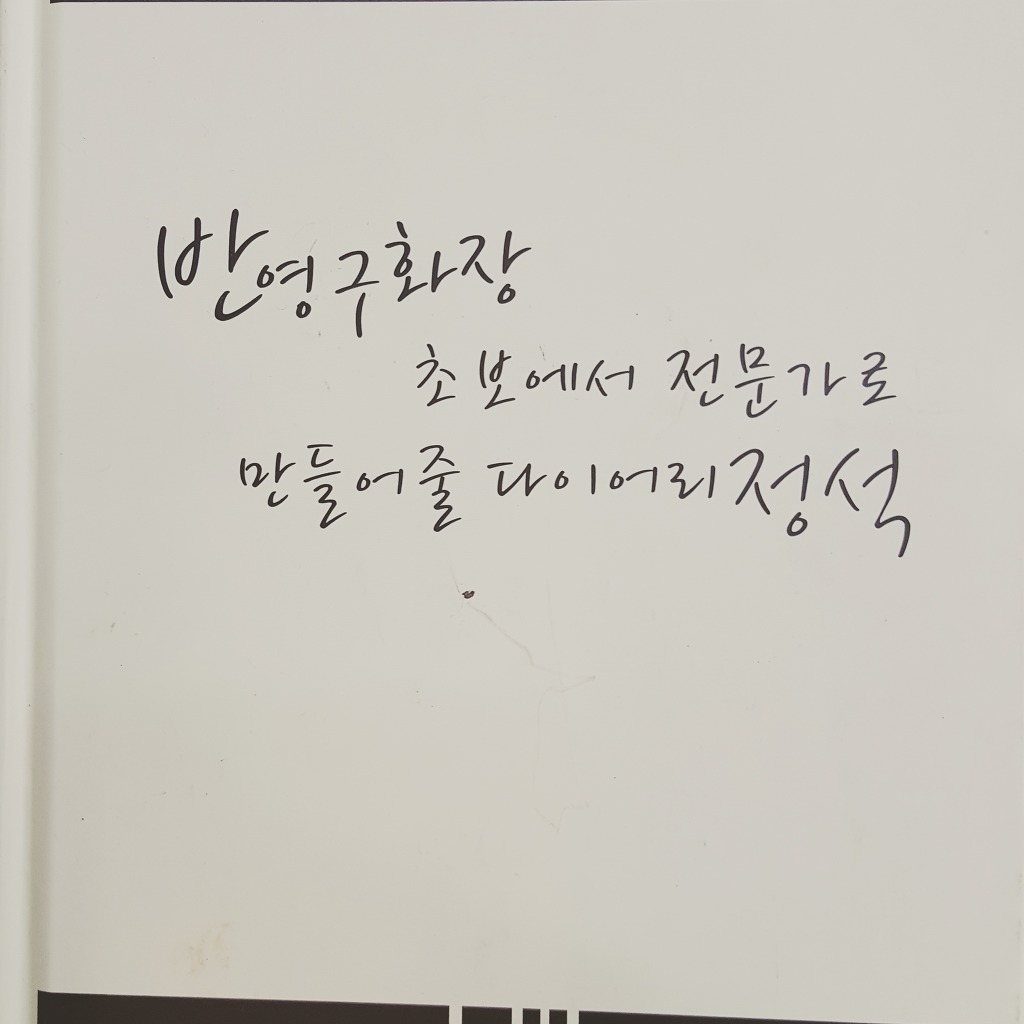 반영구화장
초보에서 전문가로
만들어줄 다이어리정석